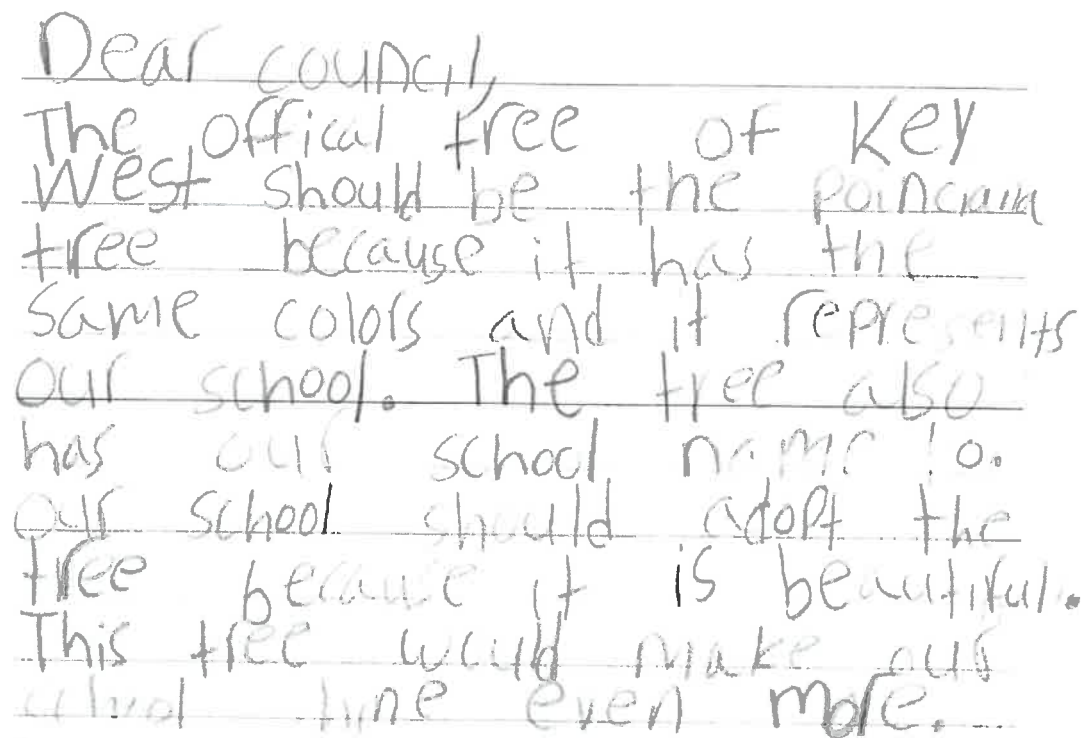 Dear council,
The offical tree of Key
West should be the poinciana
tree because it has the
same colors and it represents
our school. The tree also
has our school name to.
our school should adopt the
tree because it is beautiful.
This tree would make our
school even more.